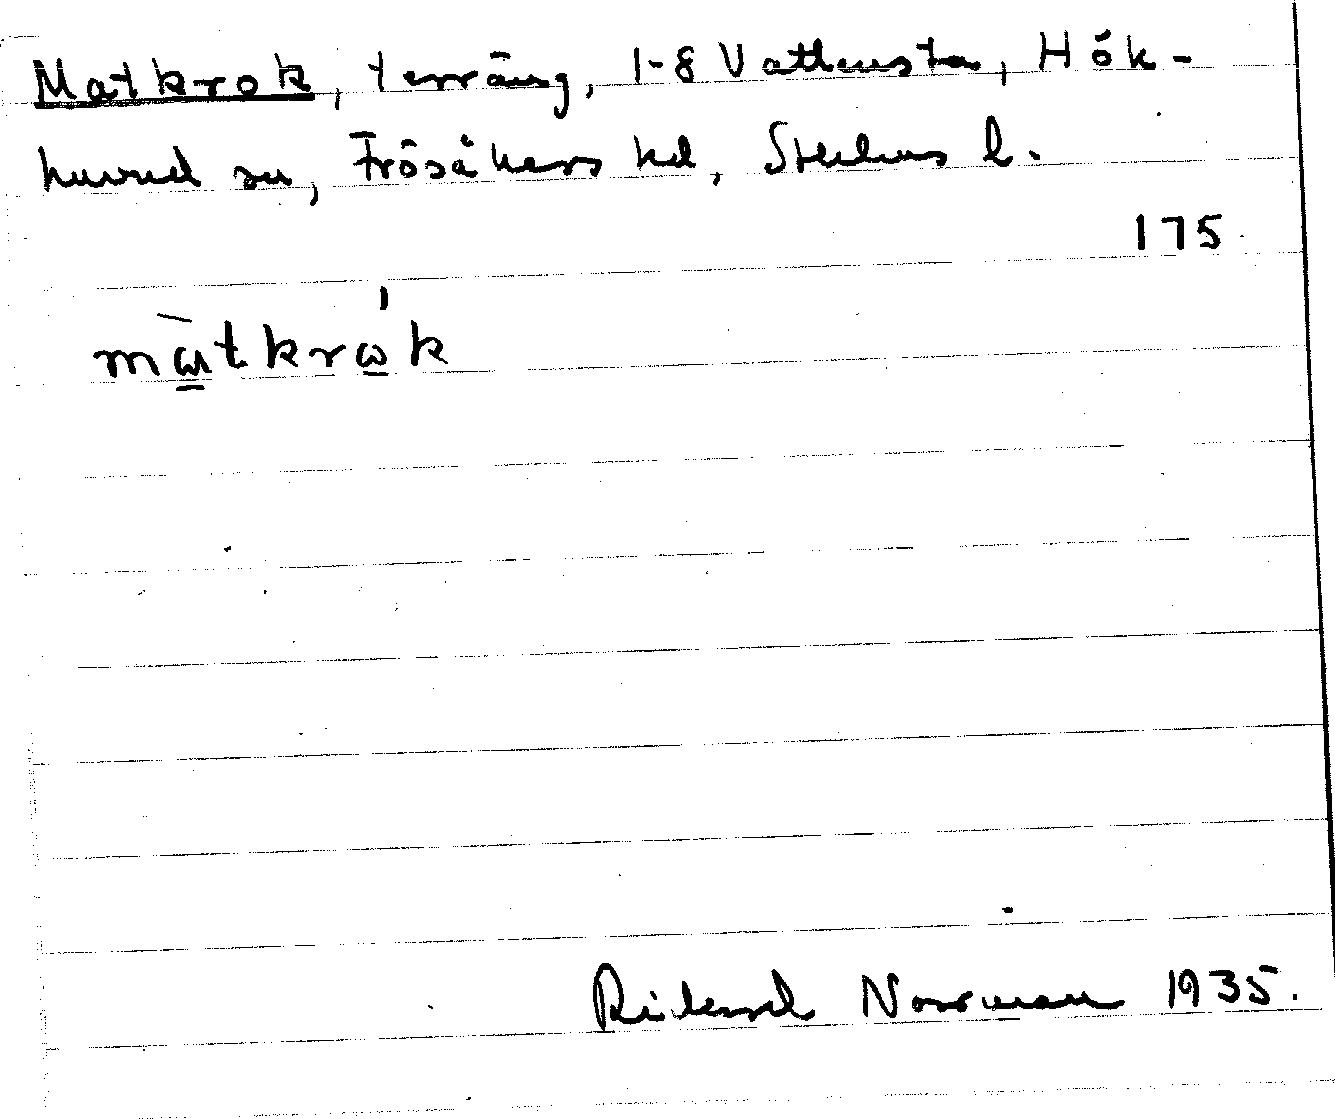 Matkrok, terräng, 1-8 Vattensta, Hök-
huvud sn, Frösåkers hd, Sthlms l.
175
màtkrώ̲k
Rickard Norrman 1935.